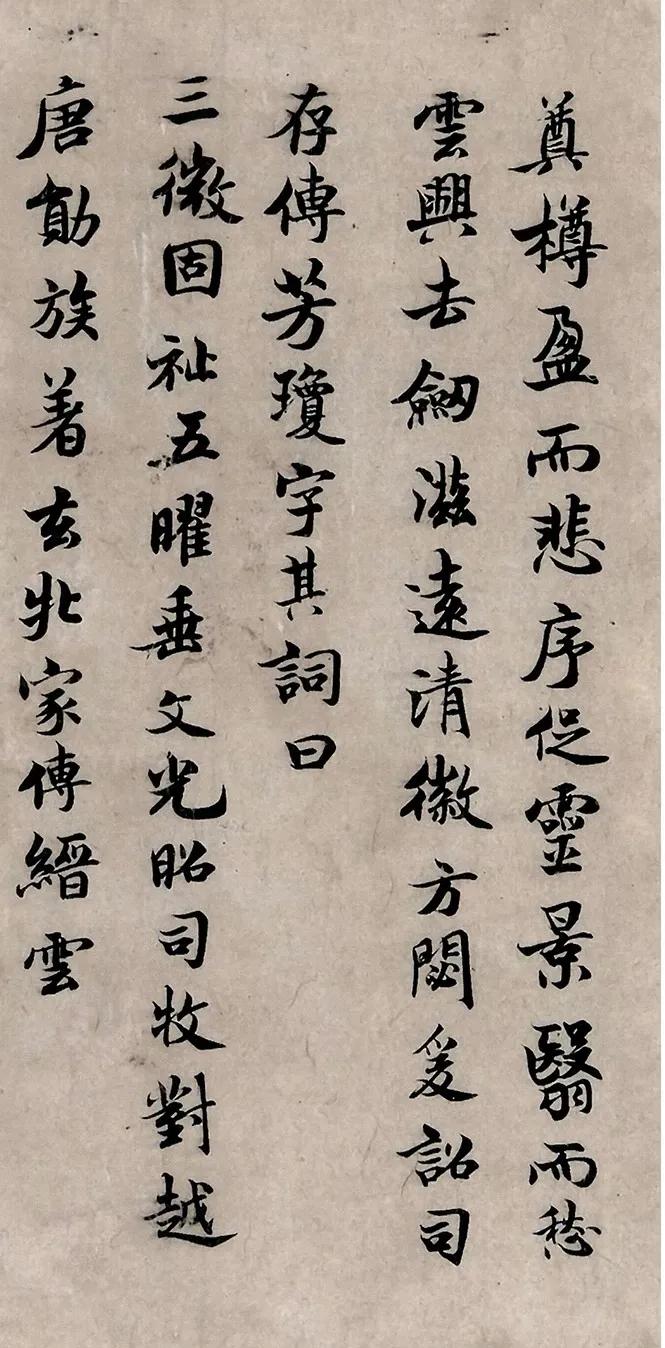 奠樽盈而悲序促靈景翳而愁
雲興去劒滋遠清徽方閟爰詔司
存傳芳瓊字其詞曰
三微固祉五曜垂文光昭司牧對越
唐勛族著玄牝家傳縉雲